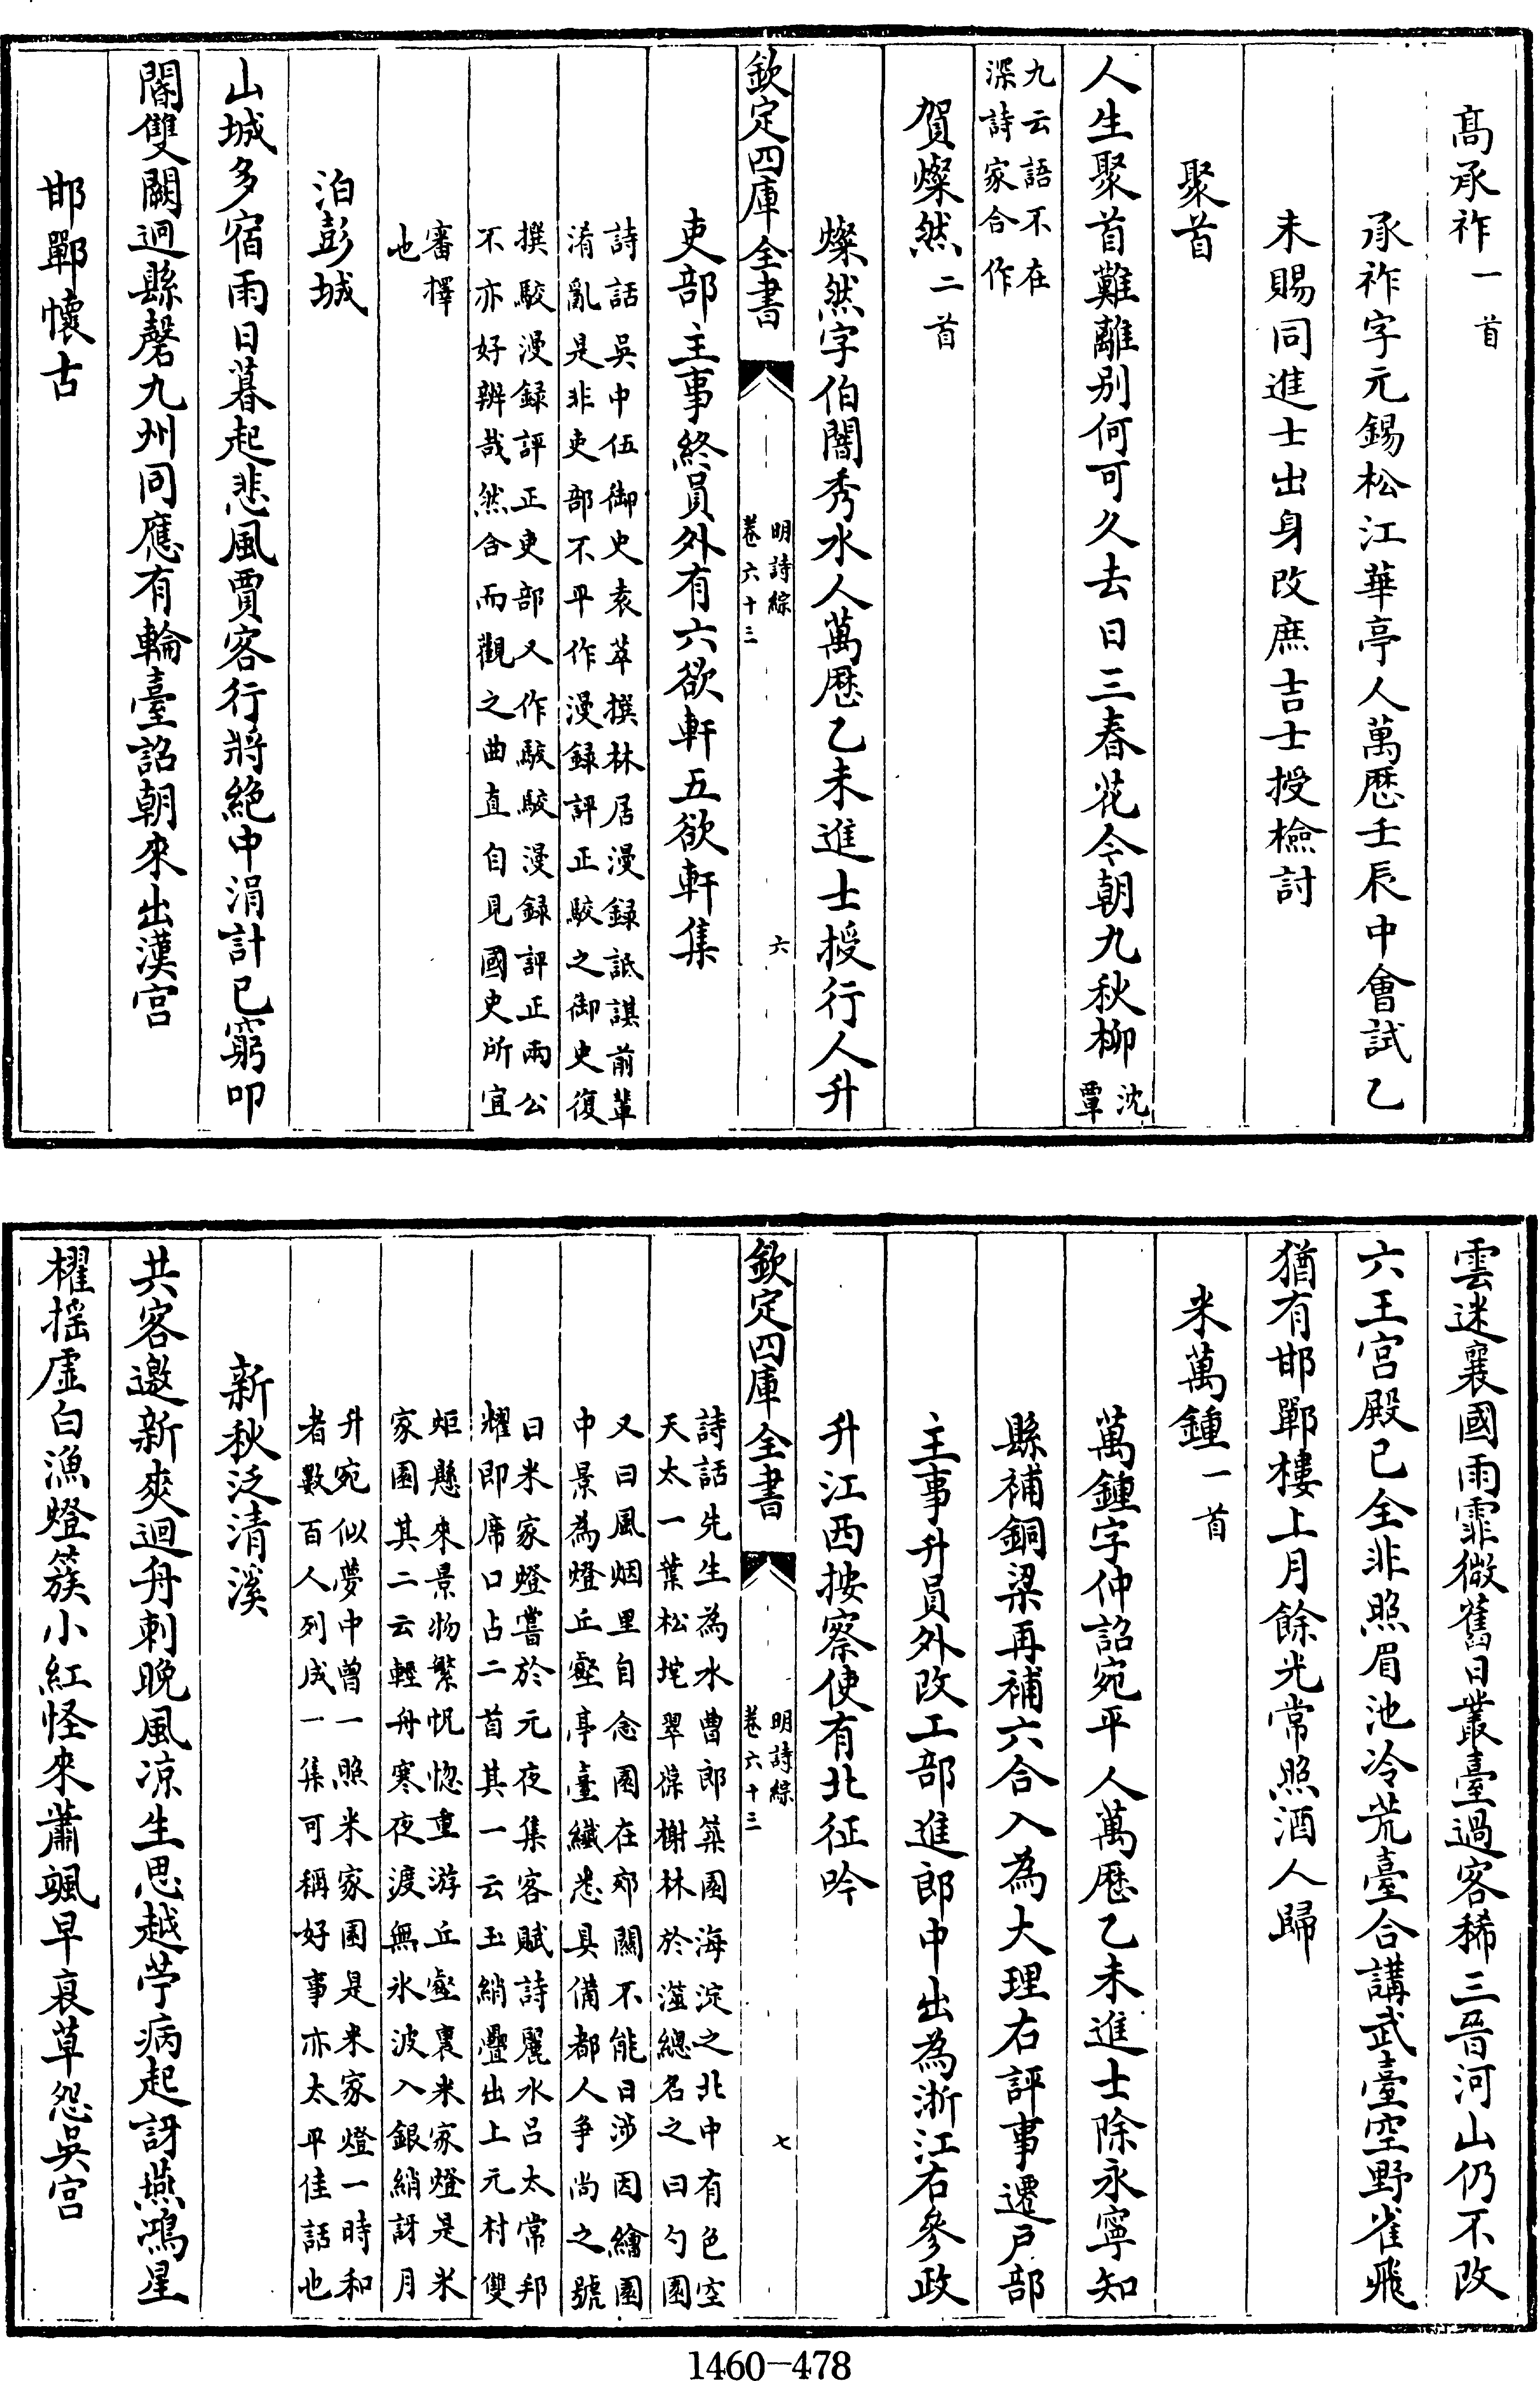 髙承祚一首
承祚字元錫松江華亭人萬歴壬辰中會試乙
未賜同進士出身改庶吉士授檢討
聚首
人生聚首難離别何可久去日三春花今朝九秋柳沈覃
九云語不在
深詩家合作
賀燦然二首
燦然字伯闇秀水人萬歴乙未進士授行人升
欽定四庫全書
明詩綜
卷六十三
六
吏部主事終員外有六欲軒五欲軒集
詩話吳中伍御史袁萃撰林居漫録詆諆前輩
淆亂是非吏部不平作漫録評正駮之御史復
撰駮漫録評正吏部又作駮駮漫録評正兩公
不亦好辨哉然合而觀之曲直自見國史所宜
審擇
也
泊彭城
山城多宿雨日暮起悲風賈客行將絶中涓計已窮叩
閽雙闕迥縣罄九州同應有輪臺詔朝來出漢宫
邯鄲懷古
雲迷襄國雨霏微舊日叢臺過客稀三晉河山仍不改
六王宫殿已全非照眉池冷荒臺合講武臺空野雀飛
猶有邯鄲樓上月餘光常照酒人歸
米萬鍾一首
萬鍾字仲詔宛平人萬歴乙未進士除永寧知
縣補銅梁再補六合入為大理右評事遷戶部
主事升員外改工部進郎中出為浙江右參政
升江西按察使有北征吟
欽定四庫全書
明詩綜
卷六十三
七
詩話先生為水曹郎築園海淀之北中有色空
天太一葉松坨翠葆榭林於澨總名之曰勺園
又曰風烟里自念園在郊關不能日涉因繪園
中景為燈丘壑亭臺纎悉具備都人争尚之號
曰米家燈嘗於元夜集客賦詩麗水呂太常邦
燿即席口占二首其一云玉綃疊出上元村雙
炬懸來景物繁怳惚重游丘壑裏米家燈是米
家園其二云輕舟寒夜渡無氷波入銀綃訝月
升宛似夢中曾一照米家園是米家燈一時和
者數百人列成一集可稱好事亦太平佳話也
新秋泛清溪
共客邀新爽迴舟刺晚風凉生思越苧病起訝燕鴻星
櫂摇虚白漁燈簇小紅怪來蕭颯早衰草怨吳宫
1460-478